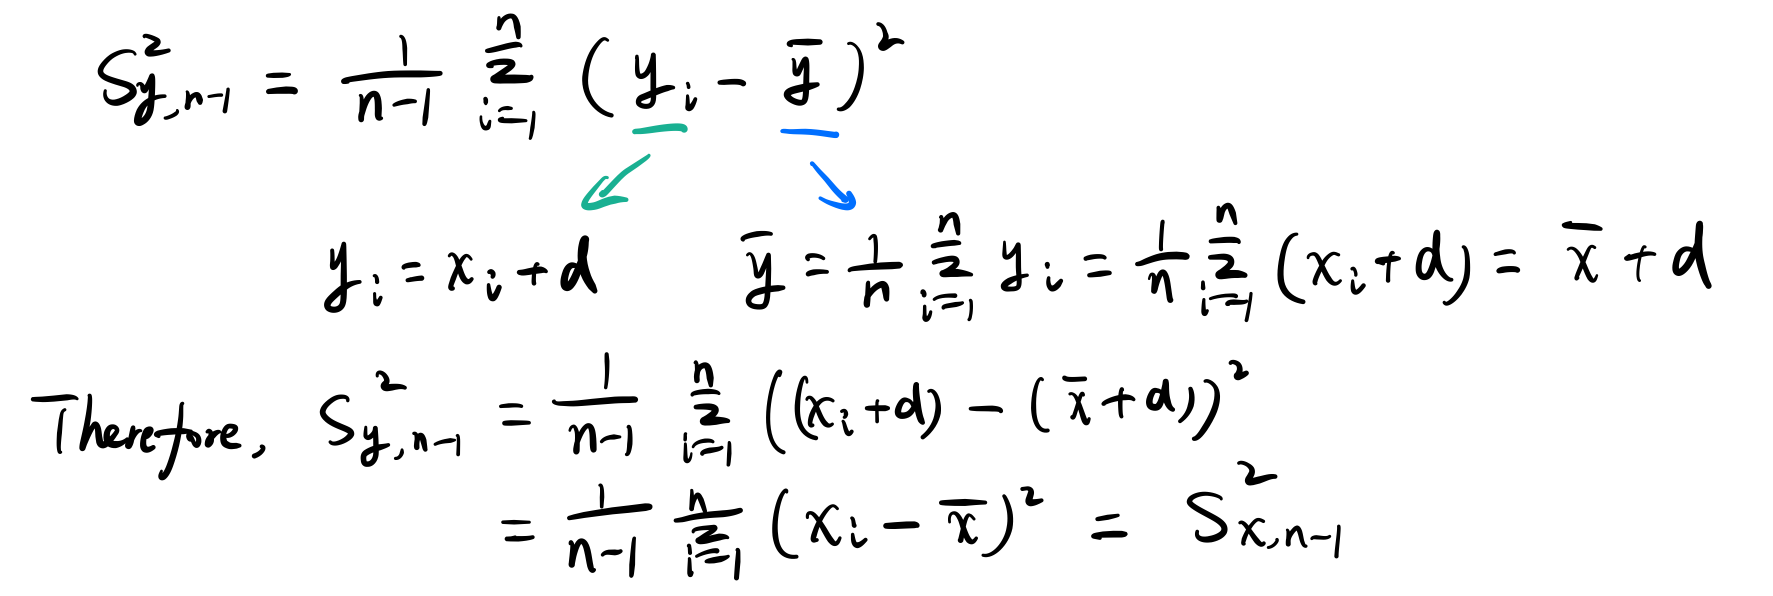 S²_{y,n-1} = \frac{1}{n-1} \sum_{i=1}^{n} (y_i - \bar{y})²
y_i = x_i + d    \bar{y} = \frac{1}{n} \sum_{i=1}^{n} y_i = \frac{1}{n} \sum_{i=1}^{n} (x_i + d) = \bar{x} + d
Therefore, S²_{y,n-1} = \frac{1}{n-1} \sum_{i=1}^{n} ((x_i + d) - (\bar{x} + d))²
= \frac{1}{n-1} \sum_{i=1}^{n} (x_i - \bar{x})² = S²_{x,n-1}